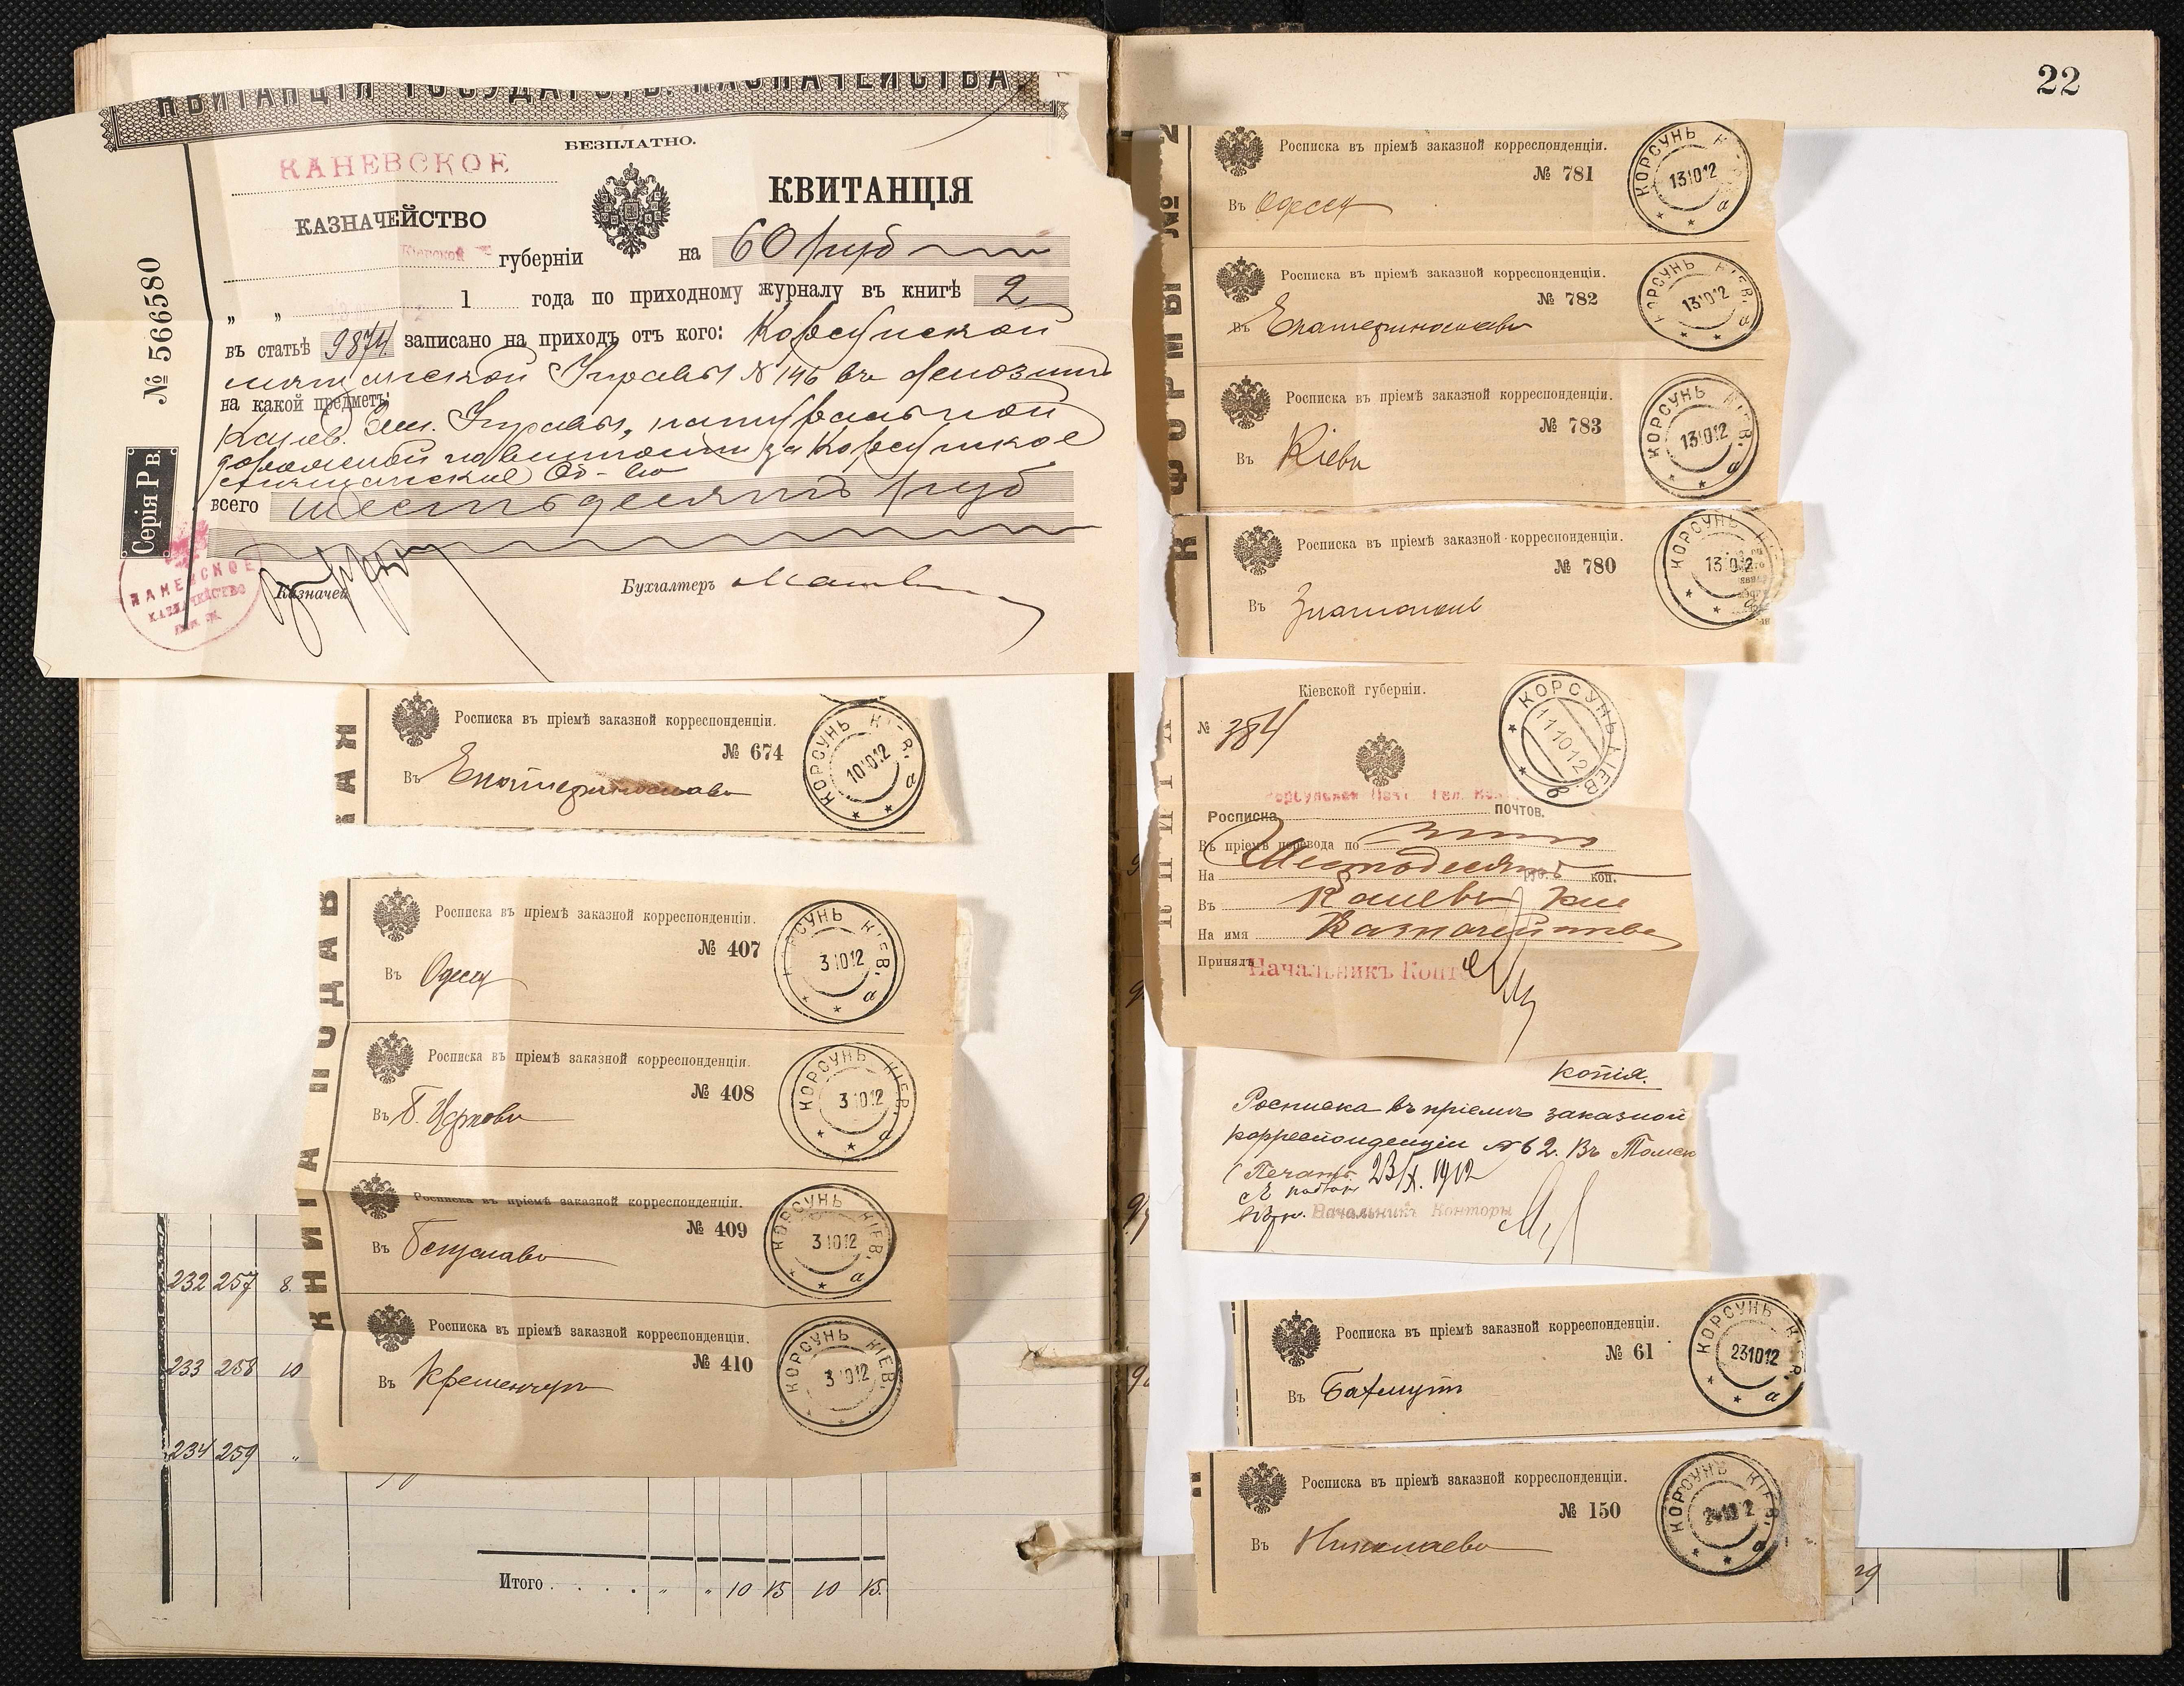 КВИТАНЦІЯ ГОСУДАРСТВ. КАЗНАЧЕЙСТВА.
БЕЗПЛАТНО.
КАНЕВСКОЕ
КАЗНАЧЕЙСТВО
Кіевской губерніи
КВИТАНЦІЯ
на 60 руб
„ „ 1 года по приходному журналу въ книгѣ 2
въ статьѣ 9874 записано на приходъ отъ кого: Корсунской
мѣщанской Управы № 146 въ депозитъ
на какой предметъ:
Канев. Зем. Управы, натуральной
дорожной повинности за Корсунское
мѣщанское Об-во
всего шестьдесятъ руб
Казначей
Бухгалтеръ
№ 566580
Серія Рв.
КАНЕВСКОЕ
КАЗНАЧЕЙСТВО
Росписка въ пріемѣ заказной корреспонденціи.
№ 674
Въ Екатеринославъ
КОРСУНЬ КІЕВ. а
10 10 12
КНИГА ПОДАВ
Росписка въ пріемѣ заказной корреспонденціи.
№ 407
Въ Одессу
КОРСУНЬ КІЕВ. а
3 10 12
Росписка въ пріемѣ заказной корреспонденціи.
№ 408
Въ Б. Церковь
КОРСУНЬ КІЕВ. а
3 10 12
Росписка въ пріемѣ заказной корреспонденціи.
№ 409
Въ Богуславъ
КОРСУНЬ КІЕВ. а
3 10 12
Росписка въ пріемѣ заказной корреспонденціи.
№ 410
Въ Кременчугъ
КОРСУНЬ КІЕВ.
3 10 12
232 257 8
233 258 10
234 259 „
Итого . . . . „ „ 10 15 10 15.
22
К ФОРМЫ № 2
Росписка въ пріемѣ заказной корреспонденціи.
№ 781
Въ Одессу
КОРСУНЬ КІЕВ. а
13 10 12
Росписка въ пріемѣ заказной корреспонденціи.
№ 782
Въ Екатеринославъ
КОРСУНЬ КІЕВ. а
13 10 12
Росписка въ пріемѣ заказной корреспонденціи.
№ 783
Въ Кіевъ
КОРСУНЬ КІЕВ. а
13 10 12
Росписка въ пріемѣ заказной корреспонденціи.
№ 780
Въ Златополь
КОРСУНЬ
13 10 12
Кіевской губерніи.
№ 384
КОРСУНЬ КІЕВ. б
11 10 12
Росписка почтов.
Въ пріемѣ перевода по
На Шестьдесятъ руб. коп.
Въ Каневъ Кіе
На имя Казначейства
Принялъ Начальникъ Конт
Копія.
Росписка въ пріемѣ заказной
корреспонденціи № 62. Въ Томск
(Печать 23/X. 1912
Начальникъ Конторы
Росписка въ пріемѣ заказной корреспонденціи.
№ 61
Въ Бахмутъ
КОРСУНЬ КІЕВ. а
23 10 12
Росписка въ пріемѣ заказной корреспонденціи.
№ 150
Въ Николаевъ
КОРСУНЬ КІЕВ. а
29